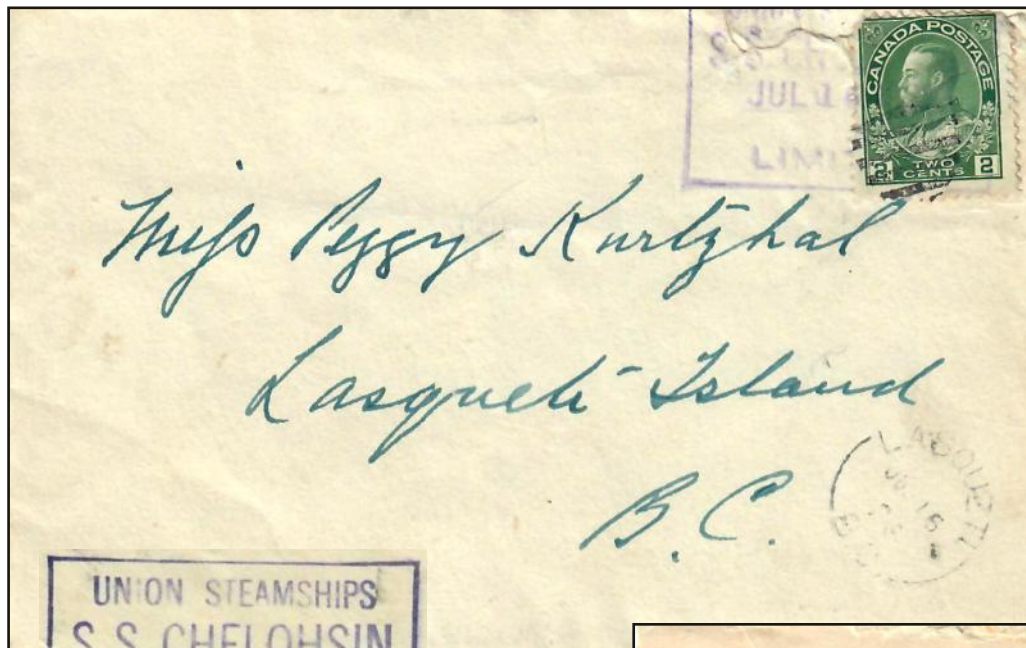 S.S. CH
JUL 14
LIMIT
CANADA POSTAGE
2 TWO CENTS 2
Miss Peggy Kurtzhal
Lasqueti Island
B.C.
LASQUETI
16
B.C.
UNION STEAMSHIPS
S.S. CHELOHSIN